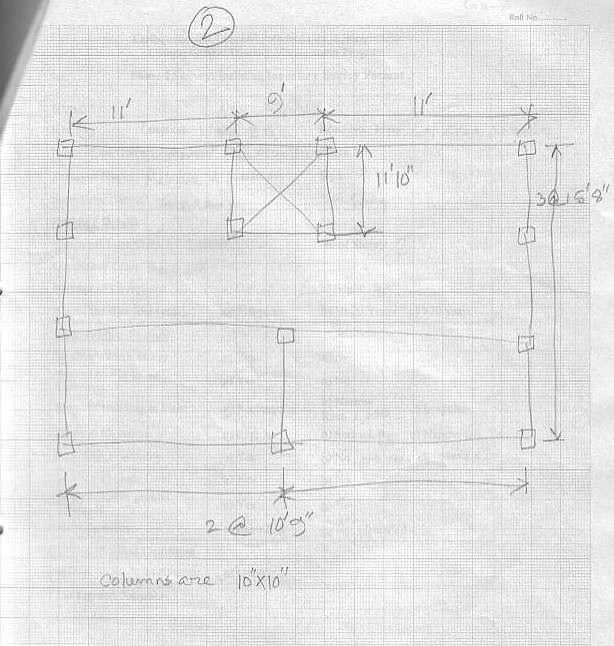 Roll No............
2
11' 9' 11'
11'10"
3@15'8"
2 @ 10'9"
Columns are 10"x10"